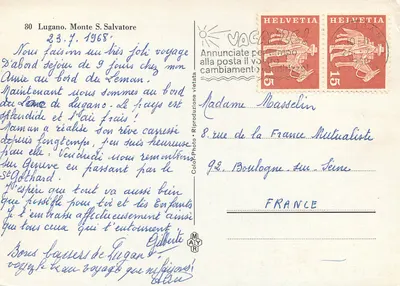 80 Lugano. Monte S. Salvatore
23.7.1968.
Nous faisons un très joli voyage
D'abord séjour de 9 jours chez mon
Amie au bord du Léman.
Maintenant nous sommes au bord
du Lac de Lugano. Le pays est
splendide et j'ai frais!
Maman a réalisé son rêve caressé
depuis longtemps, j'en suis heureuse
pour elle! nous remontons
sur Genève en passant par le
St Gothard.
J'espère que tout va aussi bien
que possible pour toi et les Enfants
Je t'embrasse affectueusement ainsi
que tous ceux qui t'entourent.
Gilberte
Bons baisers de Lugano
voyez le beau voyage que
Color-Photo - Riproduzione vietata
MAYR
VACANZE
Annunciate per tempo
alla posta il vostro
cambiamento
HELVETIA
15
HELVETIA
15
Madame Masselin
8 rue de la France Mutualiste
92. Boulogne-sur-Seine
FRANCE